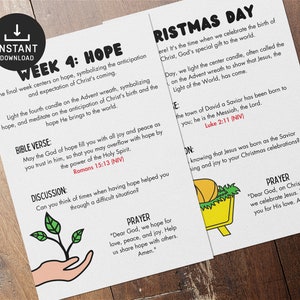 INSTANT
DOWNLOAD
WEEK 4: HOPE
he final week centers on hope, symbolizing the anticipation
and expectation of Christ's coming.
Light the fourth candle on the Advent wreath, symbolizing
hope, and meditate on the anticipation of Christ's birth and the
hope He brings to the world.
BIBLE VERSE:
May the God of hope fill you with all joy and peace as
you trust in him, so that you may overflow with hope by
the power of the Holy Spirit.
Romans 15:13 (NIV)
DISCUSSION:
Can you think of times when having hope helped you
through a difficult situation?
PRAYER
"Dear God, we hope for
love, peace, and joy. Help us
share hope with others.
Amen."
RISTMAS DAY
here! It's the time when we celebrate the birth of
Christ, God's special gift to the world.
Day, we light the center candle, often called the
on the Advent wreath to show that Jesus, the
Light of the World, has come.
the town of David a Savior has been born to
you; he is the Messiah, the Lord.
Luke 2:11 (NIV)
knowing that Jesus was born as the Savior
ng and joy to your Christmas celebrations?
PRAYER
"Dear God, on Chri
we celebrate Jesus'
you for His love. A